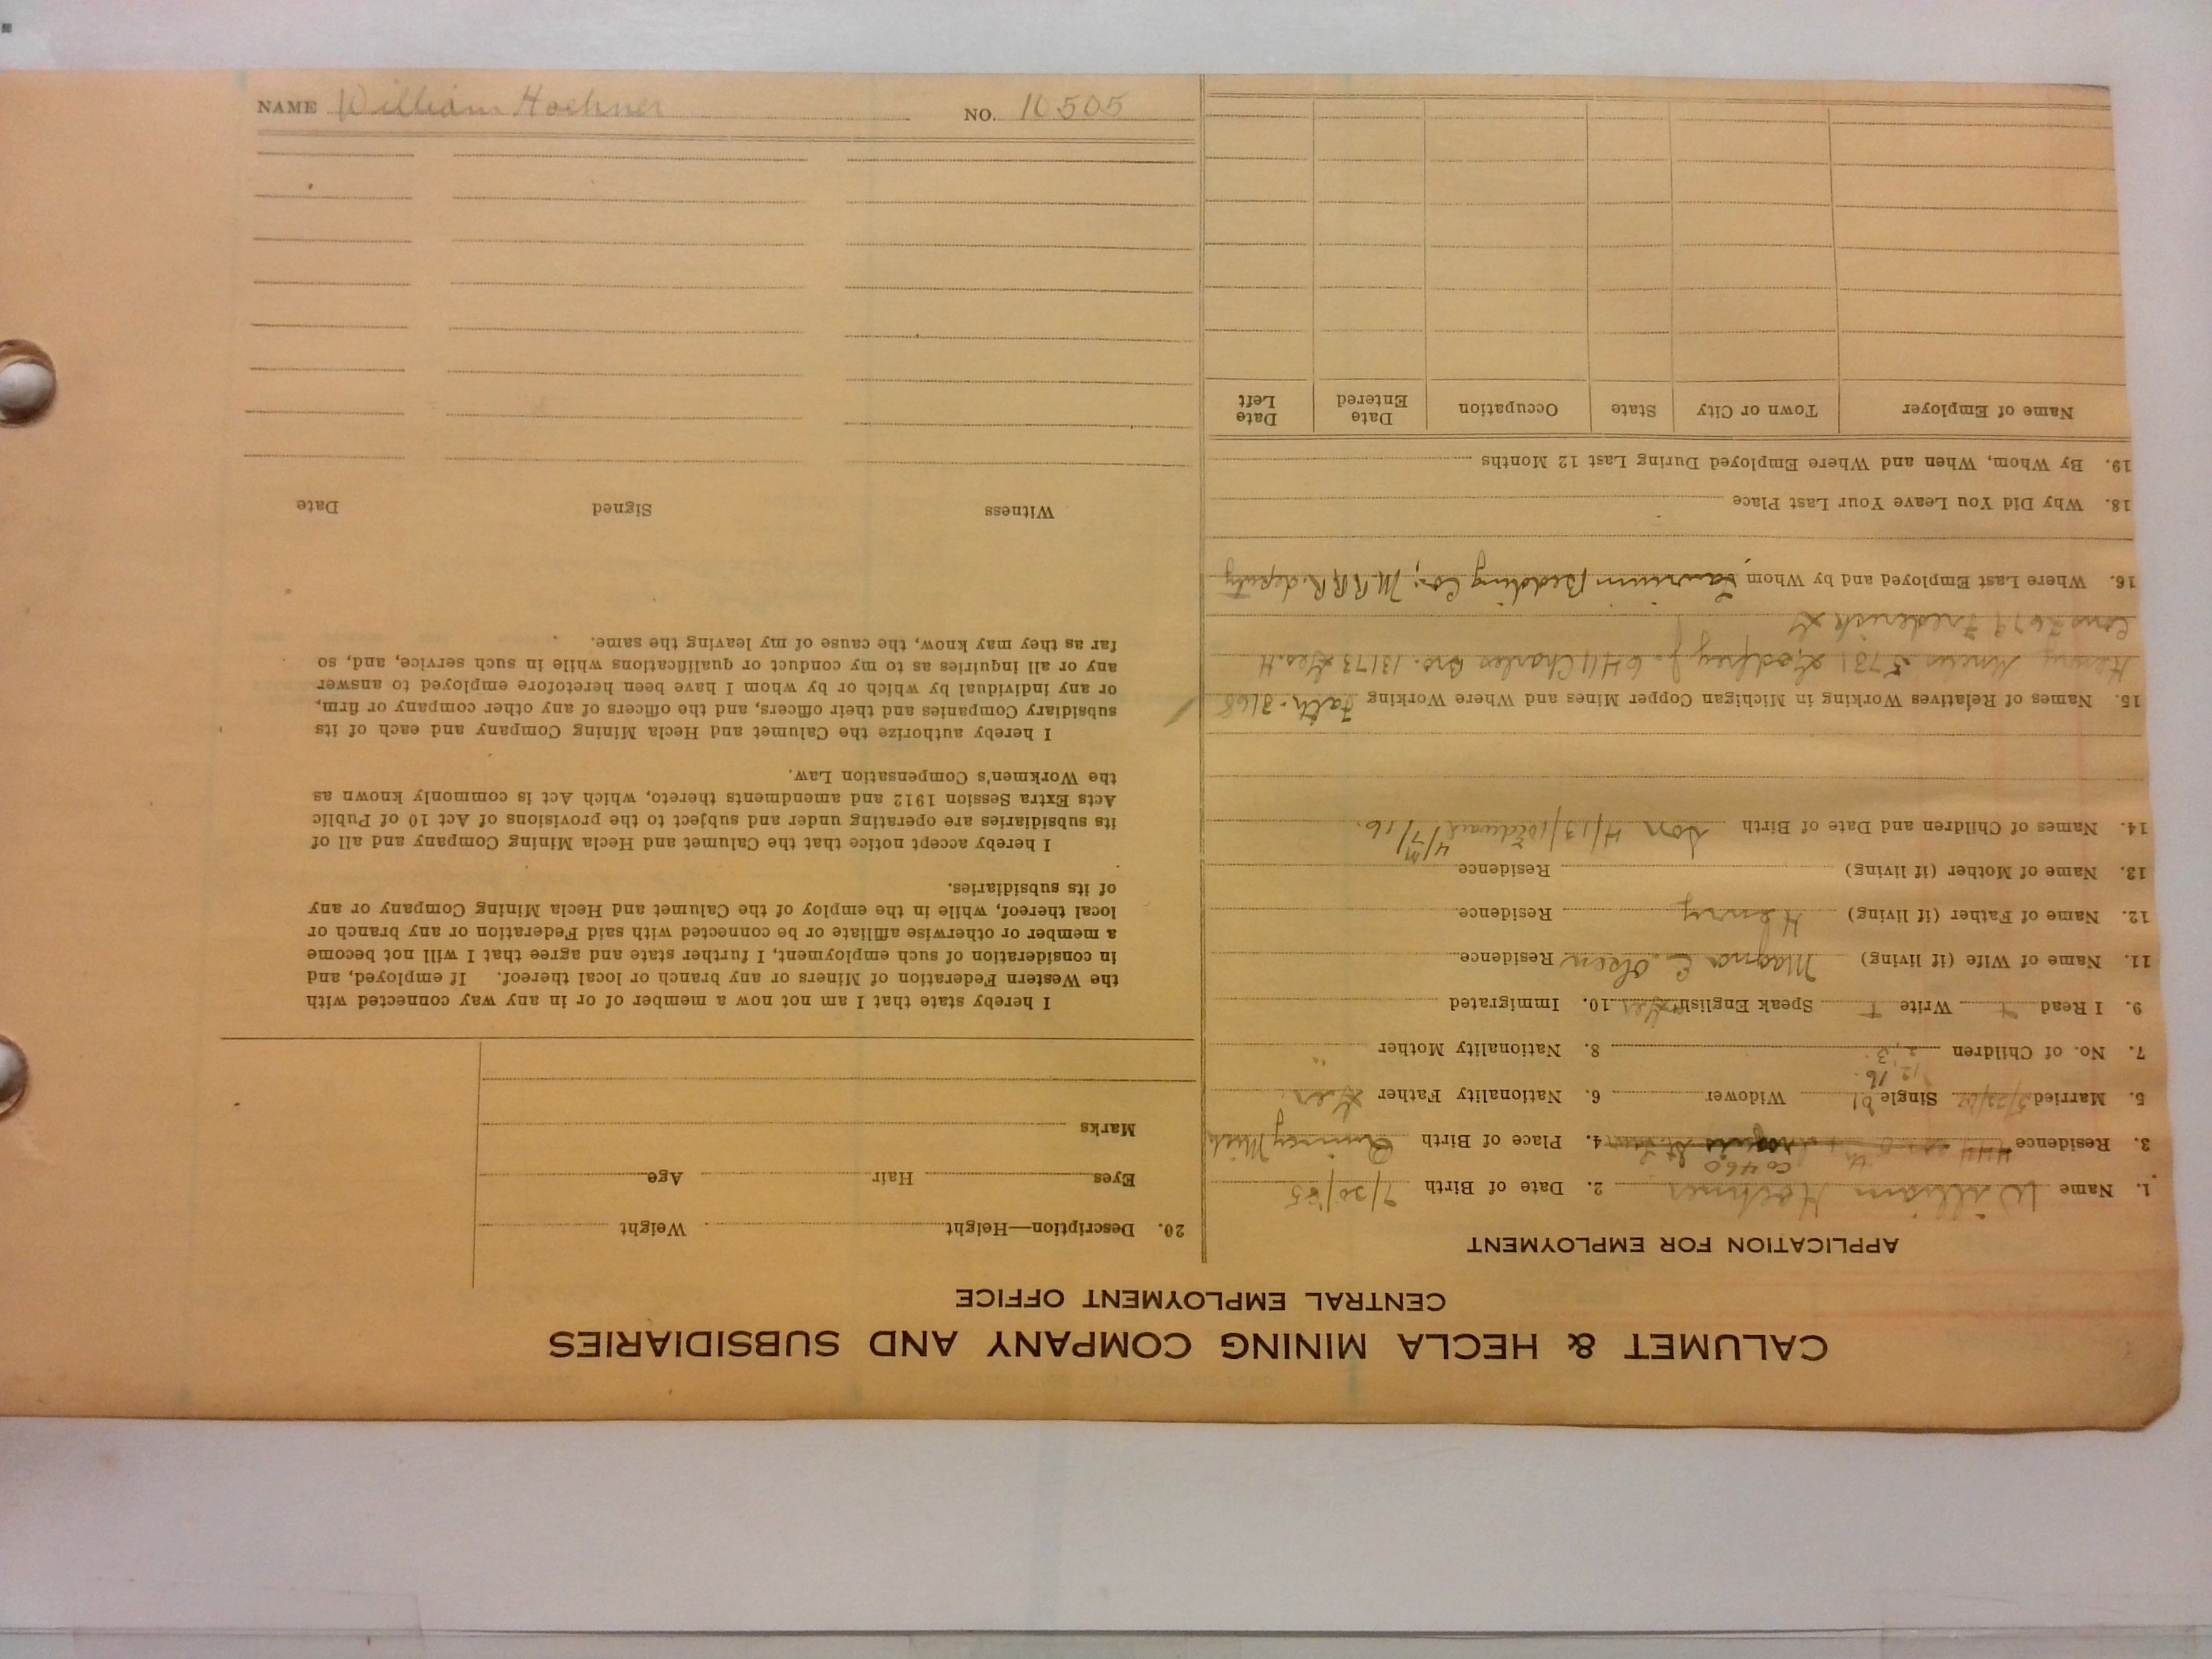 CALUMET & HECLA MINING COMPANY AND SUBSIDIARIES
CENTRAL EMPLOYMENT OFFICE
APPLICATION FOR EMPLOYMENT
1. Name William Hoehner 2. Date of Birth 7/20/85
3. Residence 4. Place of Birth Quincy Mich
5. Married Single Widower 6. Nationality Father Ger.
7. No. of Children 2, 3 8. Nationality Mother "
9. I Read Write Speak English Yes 10. Immigrated
11. Name of Wife (if living) Magna E. Olsen Residence
12. Name of Father (if living) Henry Residence
13. Name of Mother (if living) Residence
14. Names of Children and Date of Birth Son 4/13/10
15. Names of Relatives Working in Michigan Copper Mines and Where Working Fath. 3168
Henry Uncles 5731 Godfrey J. 6411 Charles Bro. 13173 Geo. H
Cous 2679 Frederick
16. Where Last Employed and by Whom Laurium Bedding Co; M.R.R.R. deputy
18. Why Did You Leave Your Last Place
19. By Whom, When and Where Employed During Last 12 Months
Name of Employer Town or City State Occupation Date Entered Date Left
20. Description—Height Weight
Eyes Hair Age
Marks
I hereby state that I am not now a member of or in any way connected with
the Western Federation of Miners or any branch or local thereof. If employed, and
in consideration of such employment, I further state and agree that I will not become
a member or otherwise affiliate or be connected with said Federation or any branch or
local thereof, while in the employ of the Calumet and Hecla Mining Company or any
of its subsidiaries.
I hereby accept notice that the Calumet and Hecla Mining Company and all of
its subsidiaries are operating under and subject to the provisions of Act 10 of Public
Acts Extra Session 1912 and amendments thereto, which Act is commonly known as
the Workmen's Compensation Law.
I hereby authorize the Calumet and Hecla Mining Company and each of its
subsidiary Companies and their officers, and the officers of any other company or firm,
or any individual by which or by whom I have been heretofore employed to answer
any or all inquiries as to my conduct or qualifications while in such service, and, so
far as they may know, the cause of my leaving the same.
Witness Signed Date
NAME William Hoehner NO. 10505